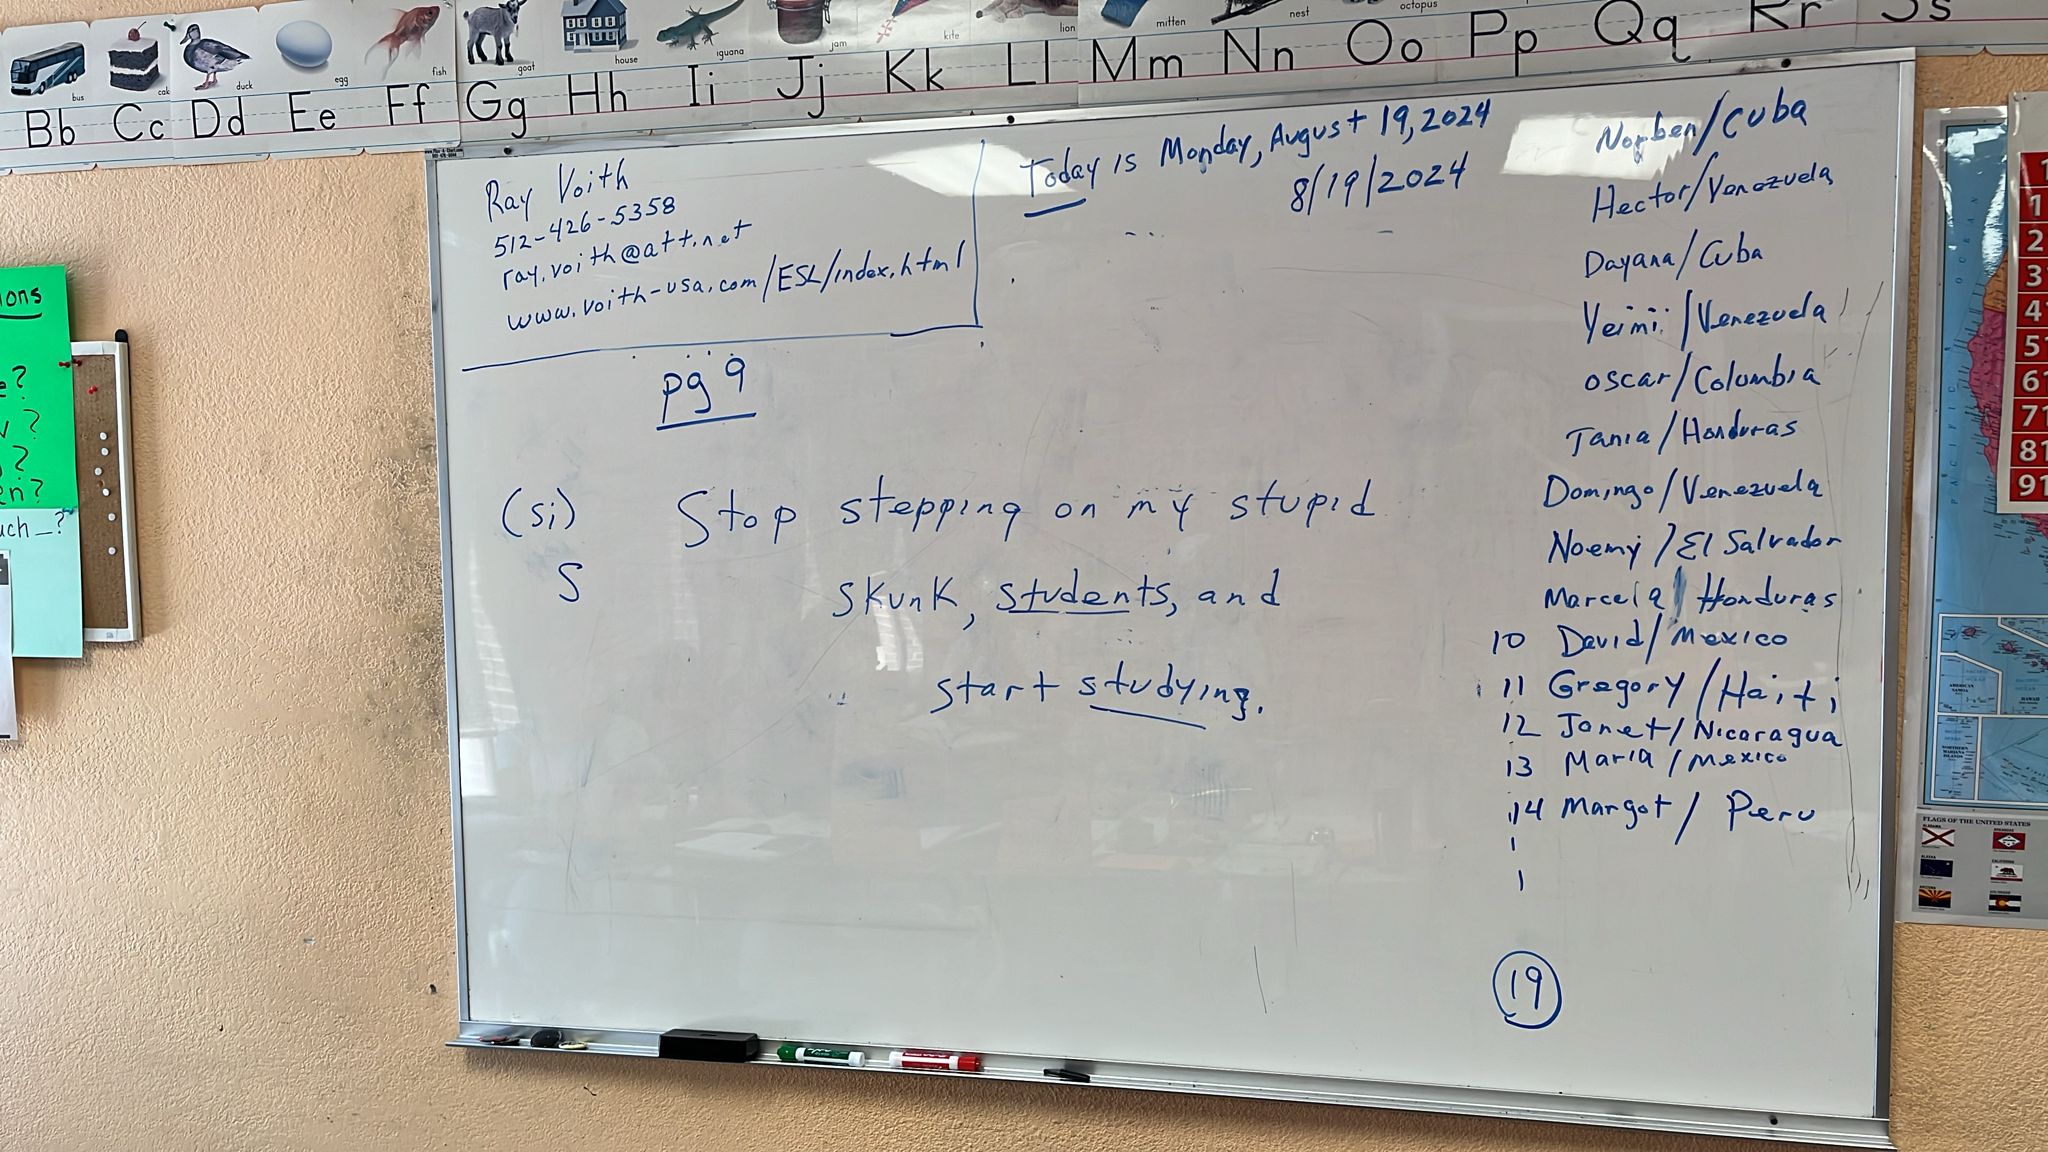 bus
cak
duck
egg
fish
goat
house
iguana
jam
kite
lion
mitten
nest
octopus
Bb Cc Dd Ee Ff Gg Hh Ii Jj Kk Ll Mm Nn Oo Pp Qq Rr Ss
Ray Voith
512-426-5358
ray.voith@att.net
www.voith-usa.com/ESL/index.html
Today is Monday, August 19, 2024
8/19/2024
pg 9
(si) Stop stepping on my stupid
S skunk, students, and
start studying.
Norben/Cuba
Hector/Venezuela
Dayana/Cuba
Yeimii/Venezuela
Oscar/Columbia
Tania/Honduras
Domingo/Venezuela
Noemy/El Salvador
Marcela/Honduras
10 David/Mexico
11 Gregory/Haiti
12 Janet/Nicaragua
13 Maria/Mexico
14 Margot/Peru
1
1
19
ions
e?
?
?
en?
uch _?
PACIFIC OCEAN
AMERICAN SAMOA
HAWAII
NORTHERN MARIANA ISLANDS
FLAGS OF THE UNITED STATES
ALABAMA
ARKANSAS
ALASKA
CALIFORNIA
ARIZONA
COLORADO
1
1
2
3
4
5
61
71
81
91